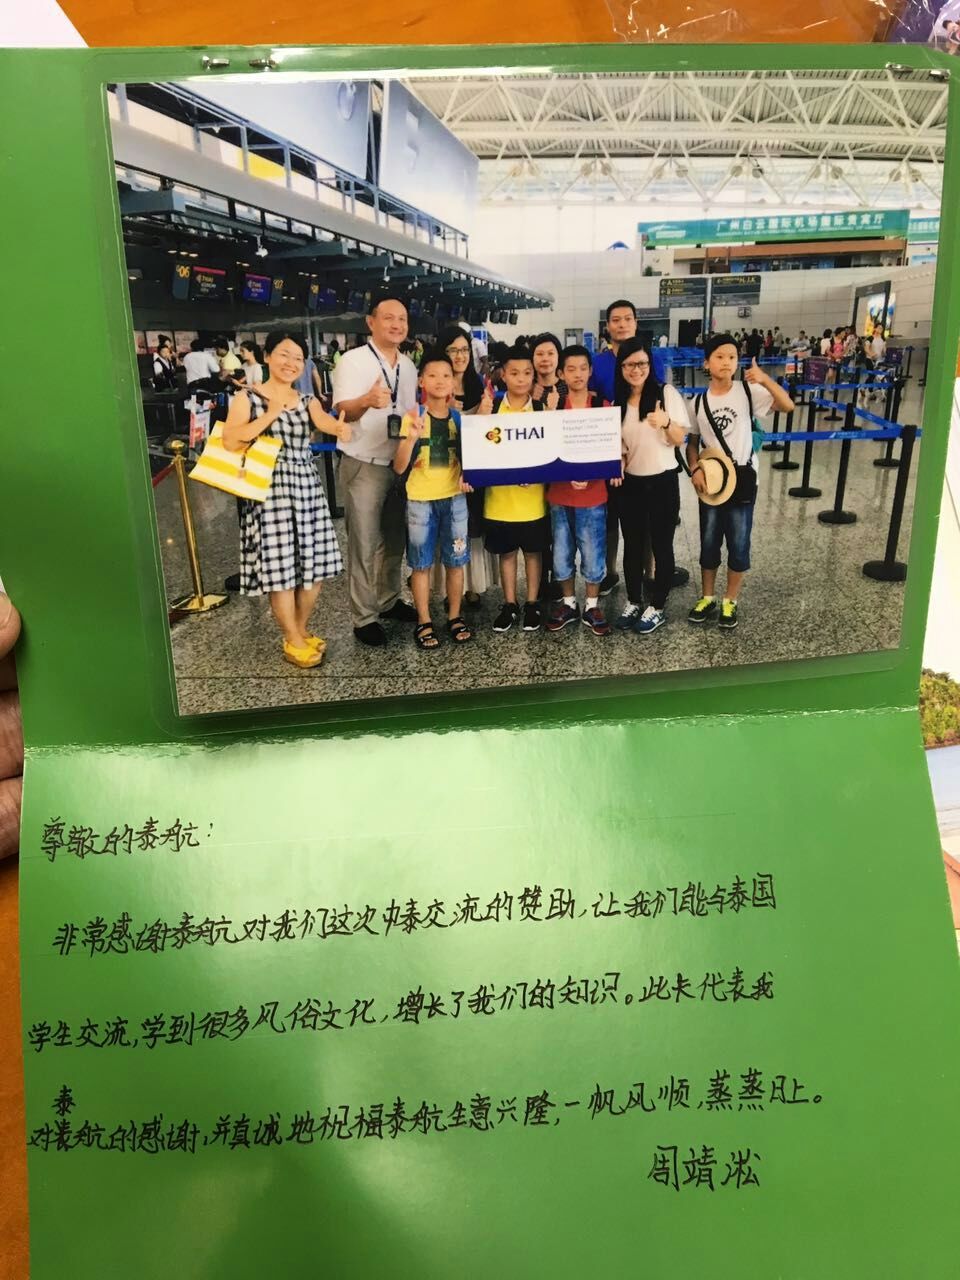 广州白云国际机场国际贵宾厅
06
THAI
07
H.J.K
THAI
尊敬的泰航：
非常感谢泰航对我们这次中泰交流的赞助，让我们能与泰国
学生交流，学到很多风俗文化，增长了我们的知识。此卡代表我
泰
对表航的感谢，并真诚地祝福泰航生意兴隆，一帆风顺，蒸蒸日上。
周靖淞